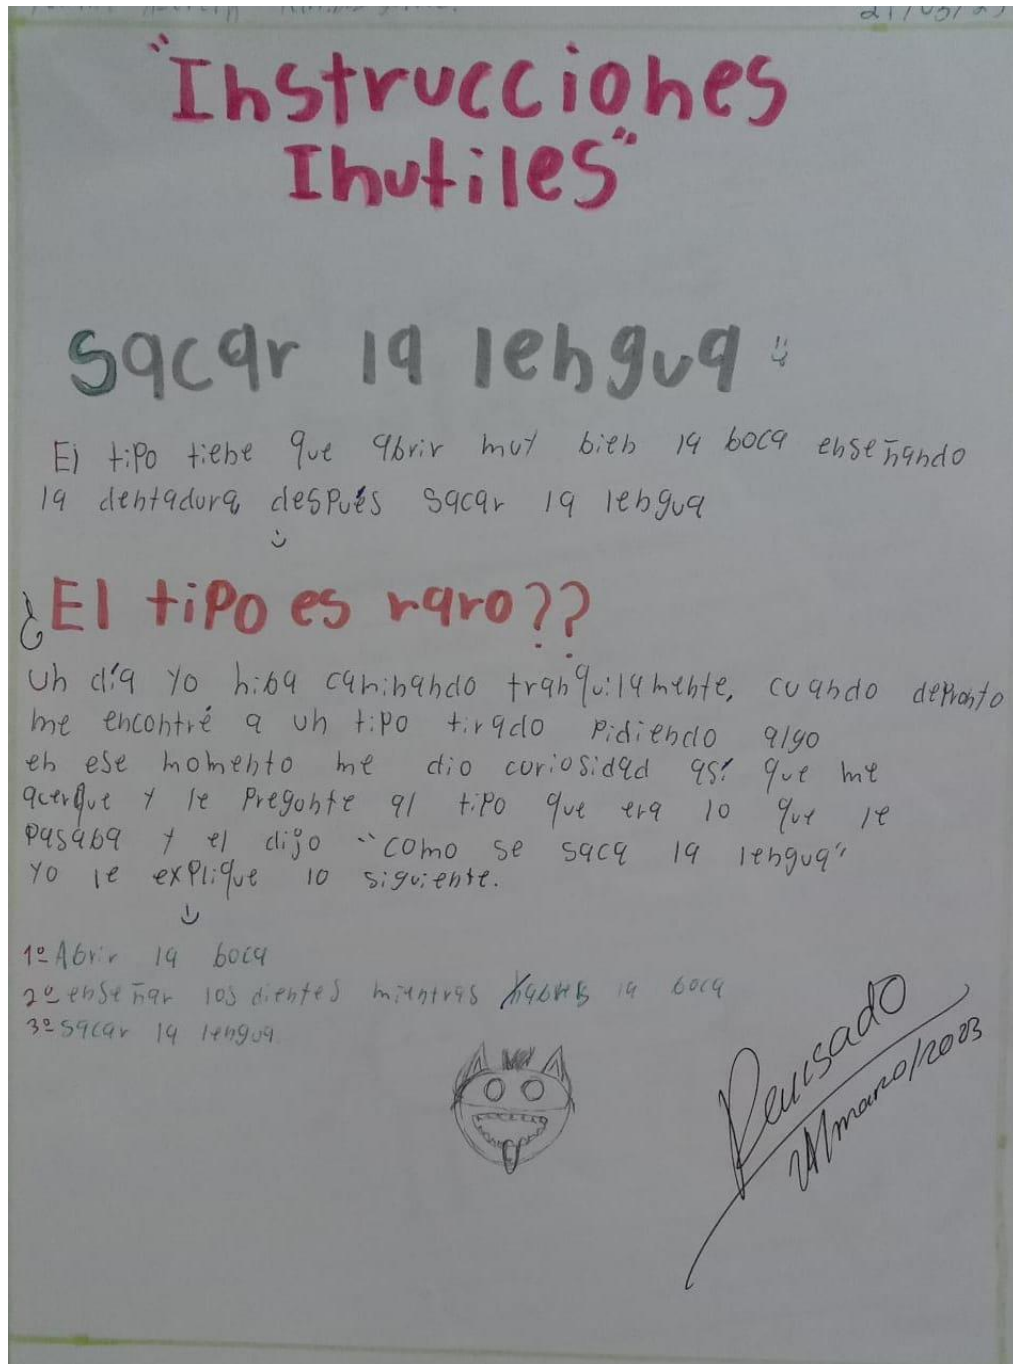 "Instrucciones
Inutiles"
Sacar la lengua
El tipo tiene que abrir muy bien la boca enseñando
la dentadura, después sacar la lengua
¿El tipo es raro??
Un día yo hiba caminando tranquilamente, cuando depronto
me encontré a un tipo tirado pidiendo algo
en ese momento me dio curiosidad así que me
acerque y le pregonte al tipo que era lo que le
pasaba y el dijo "como se saca la lengua"
yo le explique lo siguiente.
1º Abrir la boca
2º enseñar los dientes mientras habres la boca
3º sacar la lengua.
Revisado
21/marzo/2023